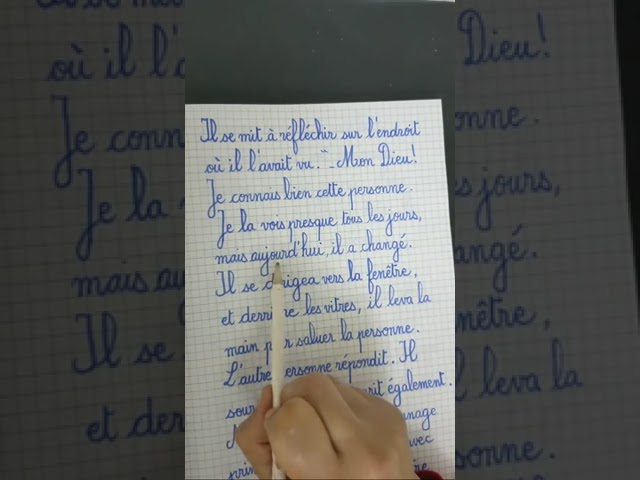 Il se mit à réfléchir sur l'endroit
où il l'avait vu. "- Mon Dieu!
Je connais bien cette personne.
Je la vois presque tous les jours,
mais aujourd'hui, il a changé.
Il se dirigea vers la fenêtre,
et derrière les vitres, il leva la
main pour saluer la personne.
L'autre personne répondit. Il
également.
avec